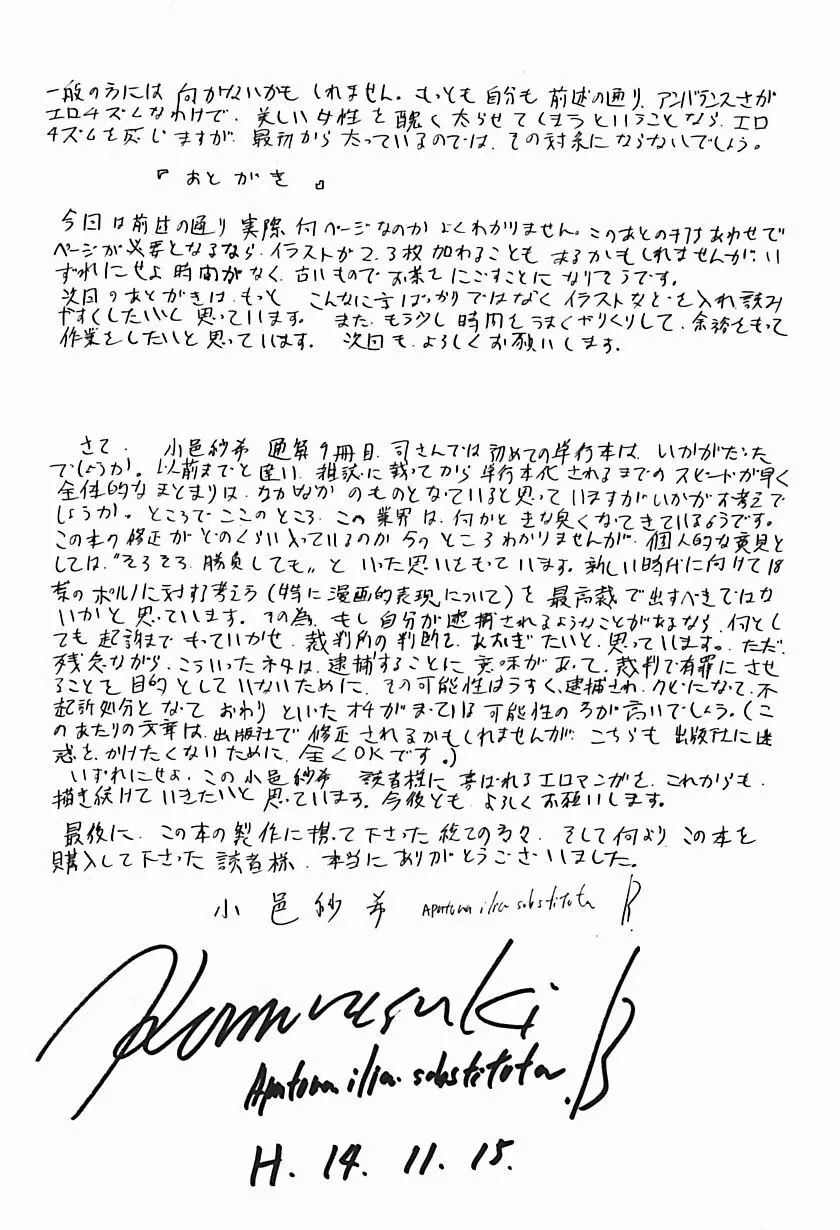 一般の方には何かないかもしれません。もっとも自分も前述の通り、アンバランスさが
エロチズムなわけで、美しい女性を醜く太らせてしまうということなら、エロ
チズムを感じますが、最初から太っているのでは、その対象にならないでしょう。
『おとがき』
今回は前述の通り実際何ページなのかよくわかりません。このあとの打ちあわせで
ページが必要となるなら、イラストが2、3枚加わることもあるかもしれませんが、い
ずれにせよ時間がなく、古いものでお茶をにごすことになりそうです。
次回のあとがきは、もっと こんなに字ばっかりではなくイラストなどを入れ読み
やすくしたいと思っています。また、もう少し時間をうまくやりくりして、余裕をもって
作業をしたいと思っています。次回も、よろしくお願いします。
さて、小邑紗希通算9冊目、司さんでは初めての単行本は、いかがだった
でしょうか。以前までと違い、雑誌に載ってから単行本化されるまでのスピードが早く
全体的なまとまりは、なかなかのものとなっていると思っていますがいかがお考えで
しょうか。ところでここのところ、この業界は、何かときな臭くなってきているようです。
この本の修正がどのくらい入っているのか今のところわかりませんが、個人的な意見と
しては、"そろそろ、勝負しても"といった思いをもっています。新しい時代に向けて18
禁のポルノに対する考えを(特に漫画的表現について)を最高裁で出すべきではな
いかと思っています。その為、もし自分が逮捕されるようなことがあるなら、何とし
ても起訴までもっていかせ、裁判所の判断を、あおぎたいと、思っています。ただ、
残念ながら、こういったネタは、逮捕することに意味があって、裁判で有罪にさせ
ることを目的としていないために、その可能性はうすく、逮捕され、クビになって、不
起訴処分となっておわりといったオチがまっている可能性の方が高いでしょう。(こ
のあたりの文章は、出版社で修正されるかもしれませんが、こちらも出版社に迷
惑をかけたくないために、全くOKです。)
いずれにせよ、この小邑紗希 読者様に喜ばれるエロマンガを、これからも、
描き続けていきたいと思っています。今後とも、よろしくお願いします。
最後に、この本の製作に携って下さった総ての方々、そして何より、この本を
購入して下さった読者様、本当にありがとうございました。
小邑紗希 Apatura ilia substituta B.
Komurasaki B
Apatura ilia. substituta.
H. 14. 11. 15.